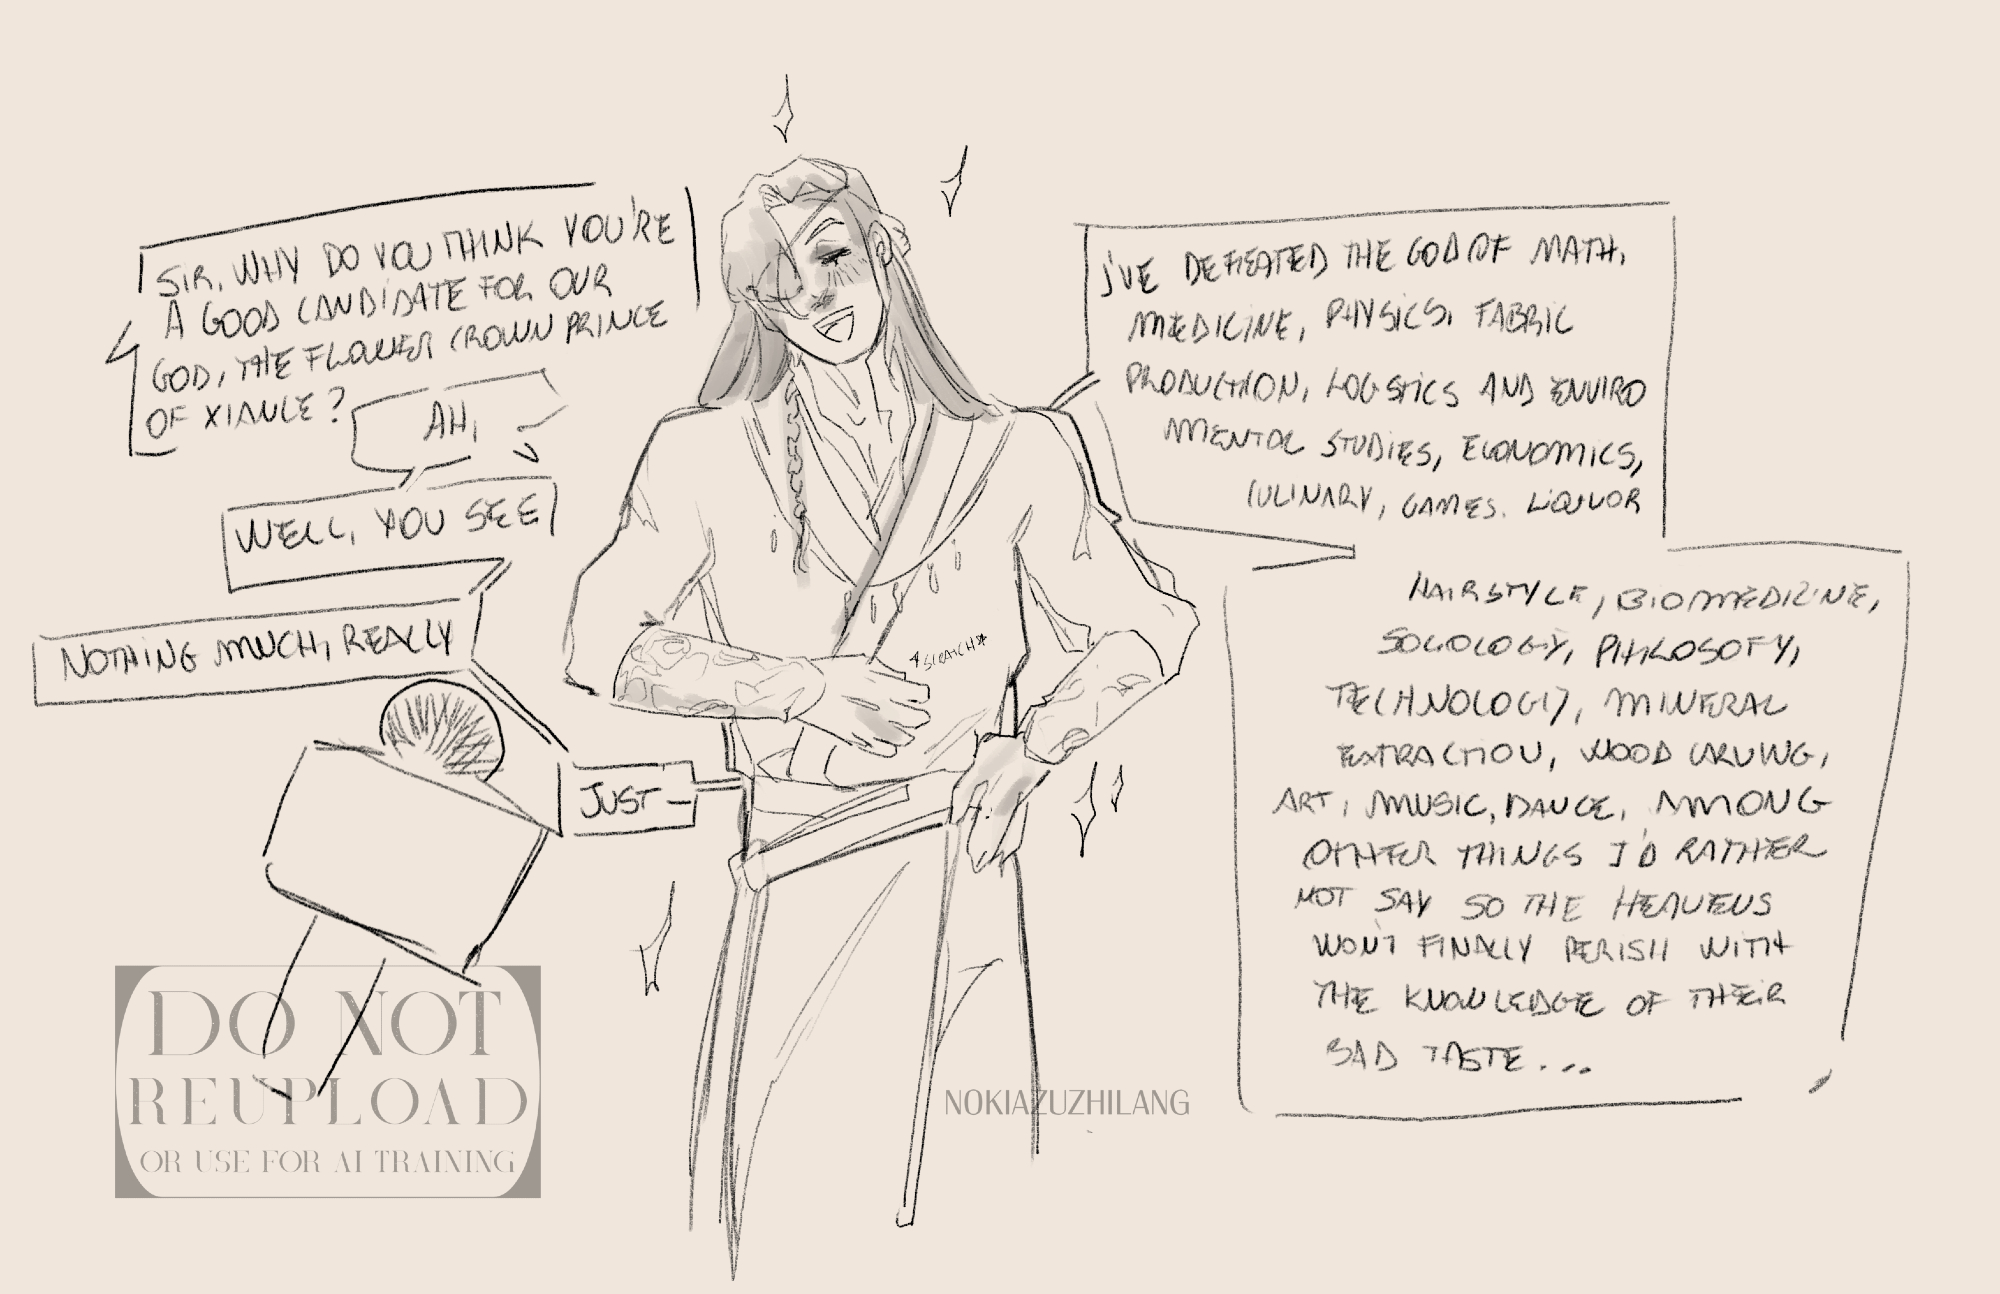 SIR, WHY DO YOU THINK YOU'RE
A GOOD CANDIDATE FOR OUR
GOD, THE FLOWER CROWN PRINCE
OF XIANLE?
AH,
WELL, YOU SEE
NOTHING MUCH, REALLY
JUST—
I'VE DEFEATED THE GOD OF MATH,
MEDICINE, PHYSICS, FABRIC
PRODUCTION, LOGSTICS AND ENVIRO
MENTAL STUDIES, ECONOMICS,
CULINARY, GAMES. LIQUOR
HAIRSTYLE, BIOMEDICINE,
SOCIOLOGY, PHILOSOFY,
TECHNOLOGY, MINERAL
EXTRACTION, WOOD CARVING,
ART, MUSIC, DANCE, AMONG
OTHER THINGS I'D RATHER
NOT SAY SO THE HEAVENS
WON'T FINALLY PERISH WITH
THE KNOWLEDGE OF THEIR
BAD TASTE...
*SCRATCH*
DO NOT
REUPLOAD
OR USE FOR AI TRAINING
NOKIAZUZHILANG